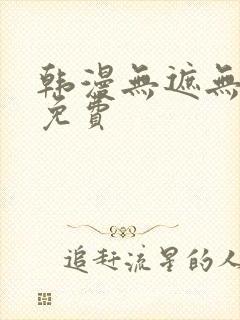 韩漫無遮無
免費
追赶流星的人